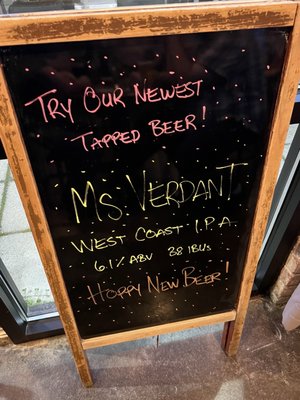 Try Our Newest
Tapped Beer!
Ms. Verdant
West Coast I.P.A.
6.1% ABV 38 IBUs
Hoppy New Beer!